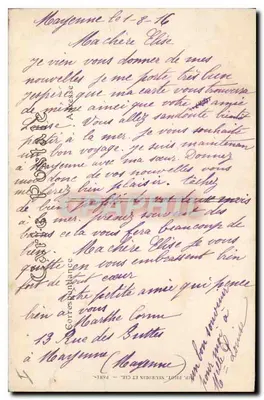 Mayenne le 1-8-16
Ma chère Elise
Je vien vous donner de mes
nouvelles je me porte très bien
j'espère que ma carte vous trouvera
de même ainci que votre amie
Louise. Vous allez sandoute bientôt
partir à la mer je vous souhaite
un bon voyage. je suis maintenant
à Mayenne avec ma sœur. Donnez
moi donc de vos nouvelles vous
me ferez bien plaisir. tachez
de bien
mois
à la mer. prenez
bains cela vous fera beaucoup de
bien. Ma chère Elise je vous
quitte en vous embrassent bien
fort de coeur
Votre petite amie qui pence
bien à vous
Marthe
13 Rue des Buttes
à Mayenne (Mayenne)
un bon souvenir
pour
à
Louise
Carte Postale
Correspondance
Adresse